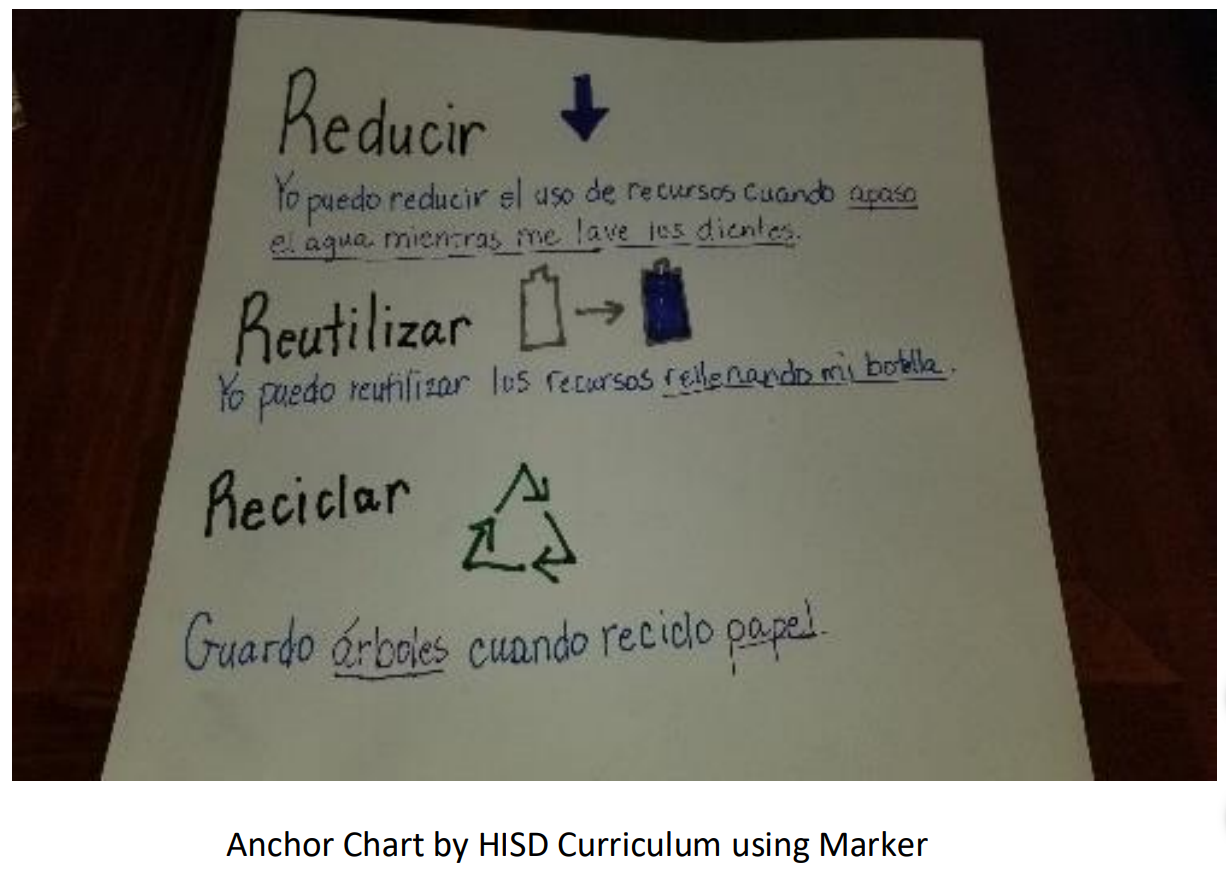 Reducir
Yo puedo reducir el uso de recursos cuando apaso
el agua mientras me lave los dientes.
Reutilizar
Yo puedo reutilizar los recursos rellenando mi botella.
Reciclar
Guardo árboles cuando reciclo papel.
Anchor Chart by HISD Curriculum using Marker